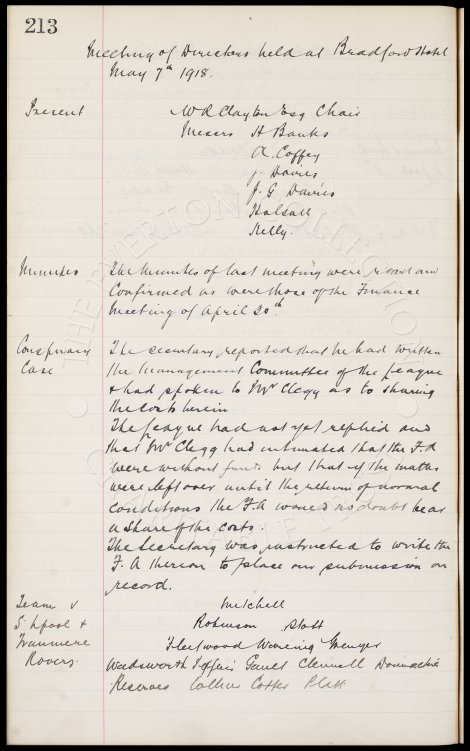 213
Meeting of Directors held at Bradford Hotel
May 7th 1918.
Present W R Clayton Esq Chair
Messrs H Banks
A. Coffey
J. Davies
J. G Davies
Halsall
Kelly.
Minutes The Minutes of last meeting were read and
Confirmed as were those of the Finance
Meeting of April 30th.
Conspiracy The secretary reported that he had written
Case the Management Committee of the League
& had spoken to Mr Clegg as to sharing
the costs herein
The League had not yet replied and
that Mr Clegg had intimated that the F.A
were without funds but that if the matter
were left over until the return of normal
conditions the F.A would no doubt bear
a share of the costs.
The Secretary was instructed to write the
F. A thereon to place our submission on
record.
Team v Mitchell
S'hpool & Robinson Stott
Tranmere Fleetwood Wareing Grenyer
Rovers.
Wadsworth Jefferis Gault Clennell Donnachie
Reserves Collins Cotter Platt
THE EVERTON COLLECTION
CHARITABLE TRUST